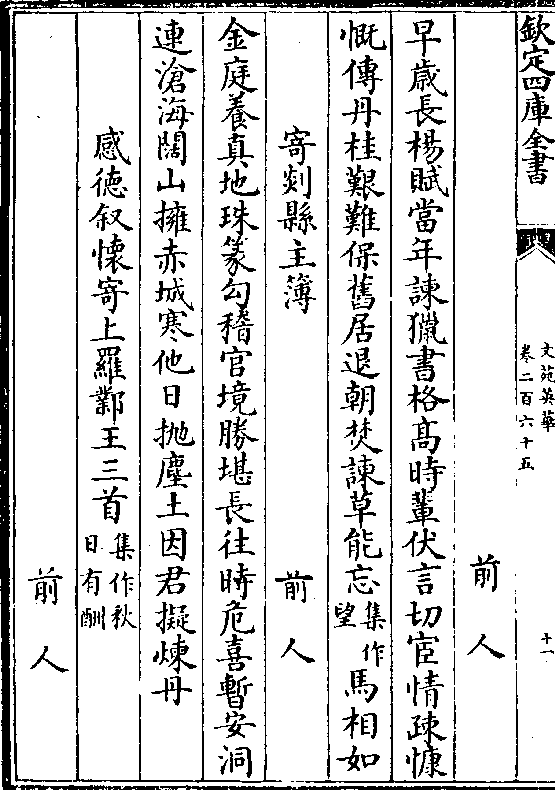 欽定四庫全書
文苑英華
卷二百六十五
十一
前人
早歳長楊賦當年諫獵書格髙時輩伏言切宦情疎慷
慨傳丹桂艱難保舊居退朝焚諫草能忘集作望馬相如
寄剡縣主簿
前人
金庭養真地珠篆勾稽官境勝堪長往時危喜暫安洞
連滄海闊山擁赤城寒他日抛塵土因君擬煉丹
感德叙懐寄上羅鄴王三首集作秋日有酬
前人